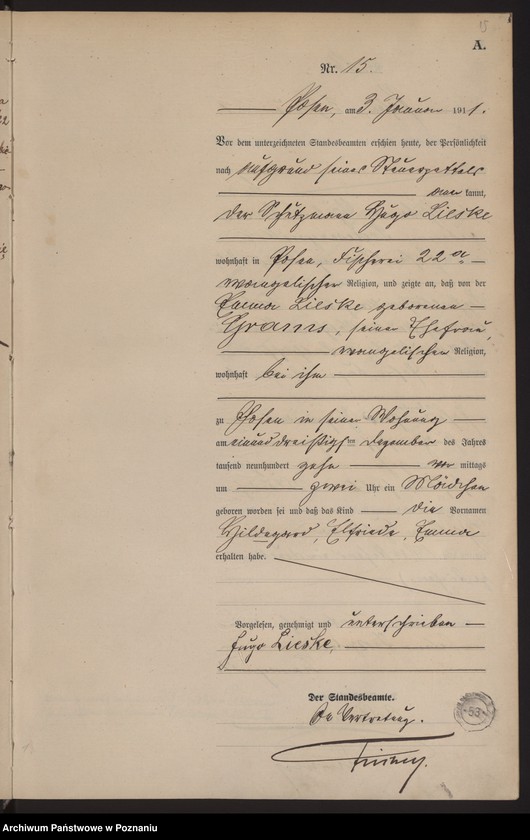 15
A.
Nr. 15.
Posen, am 3. Januar 1911.
Vor dem unterzeichneten Standesbeamten erschien heute, der Persönlichkeit
nach aufgrund seines Steuerzettels
aner kannt,
der Schutzmann Hugo Lieske
wohnhaft in Posen, Fischerei 22a
evangelischer Religion, und zeigte an, daß von der
Emma Lieske geborenen
Grams, seiner Ehefrau,
evangelischer Religion,
wohnhaft bei ihm
zu Posen in seiner Wohnung
am einunddreißigsten Dezember des Jahres
tausend neunhundert zehn vor mittags
um zwei Uhr ein Mädchen
geboren worden sei und daß das Kind die Vornamen
Hildegard, Elfriede, Emma
erhalten habe.
Vorgelesen, genehmigt und unterschrieben
Hugo Lieske.
Der Standesbeamte.
In Vertretung.
53
Archiwum Państwowe w Poznaniu